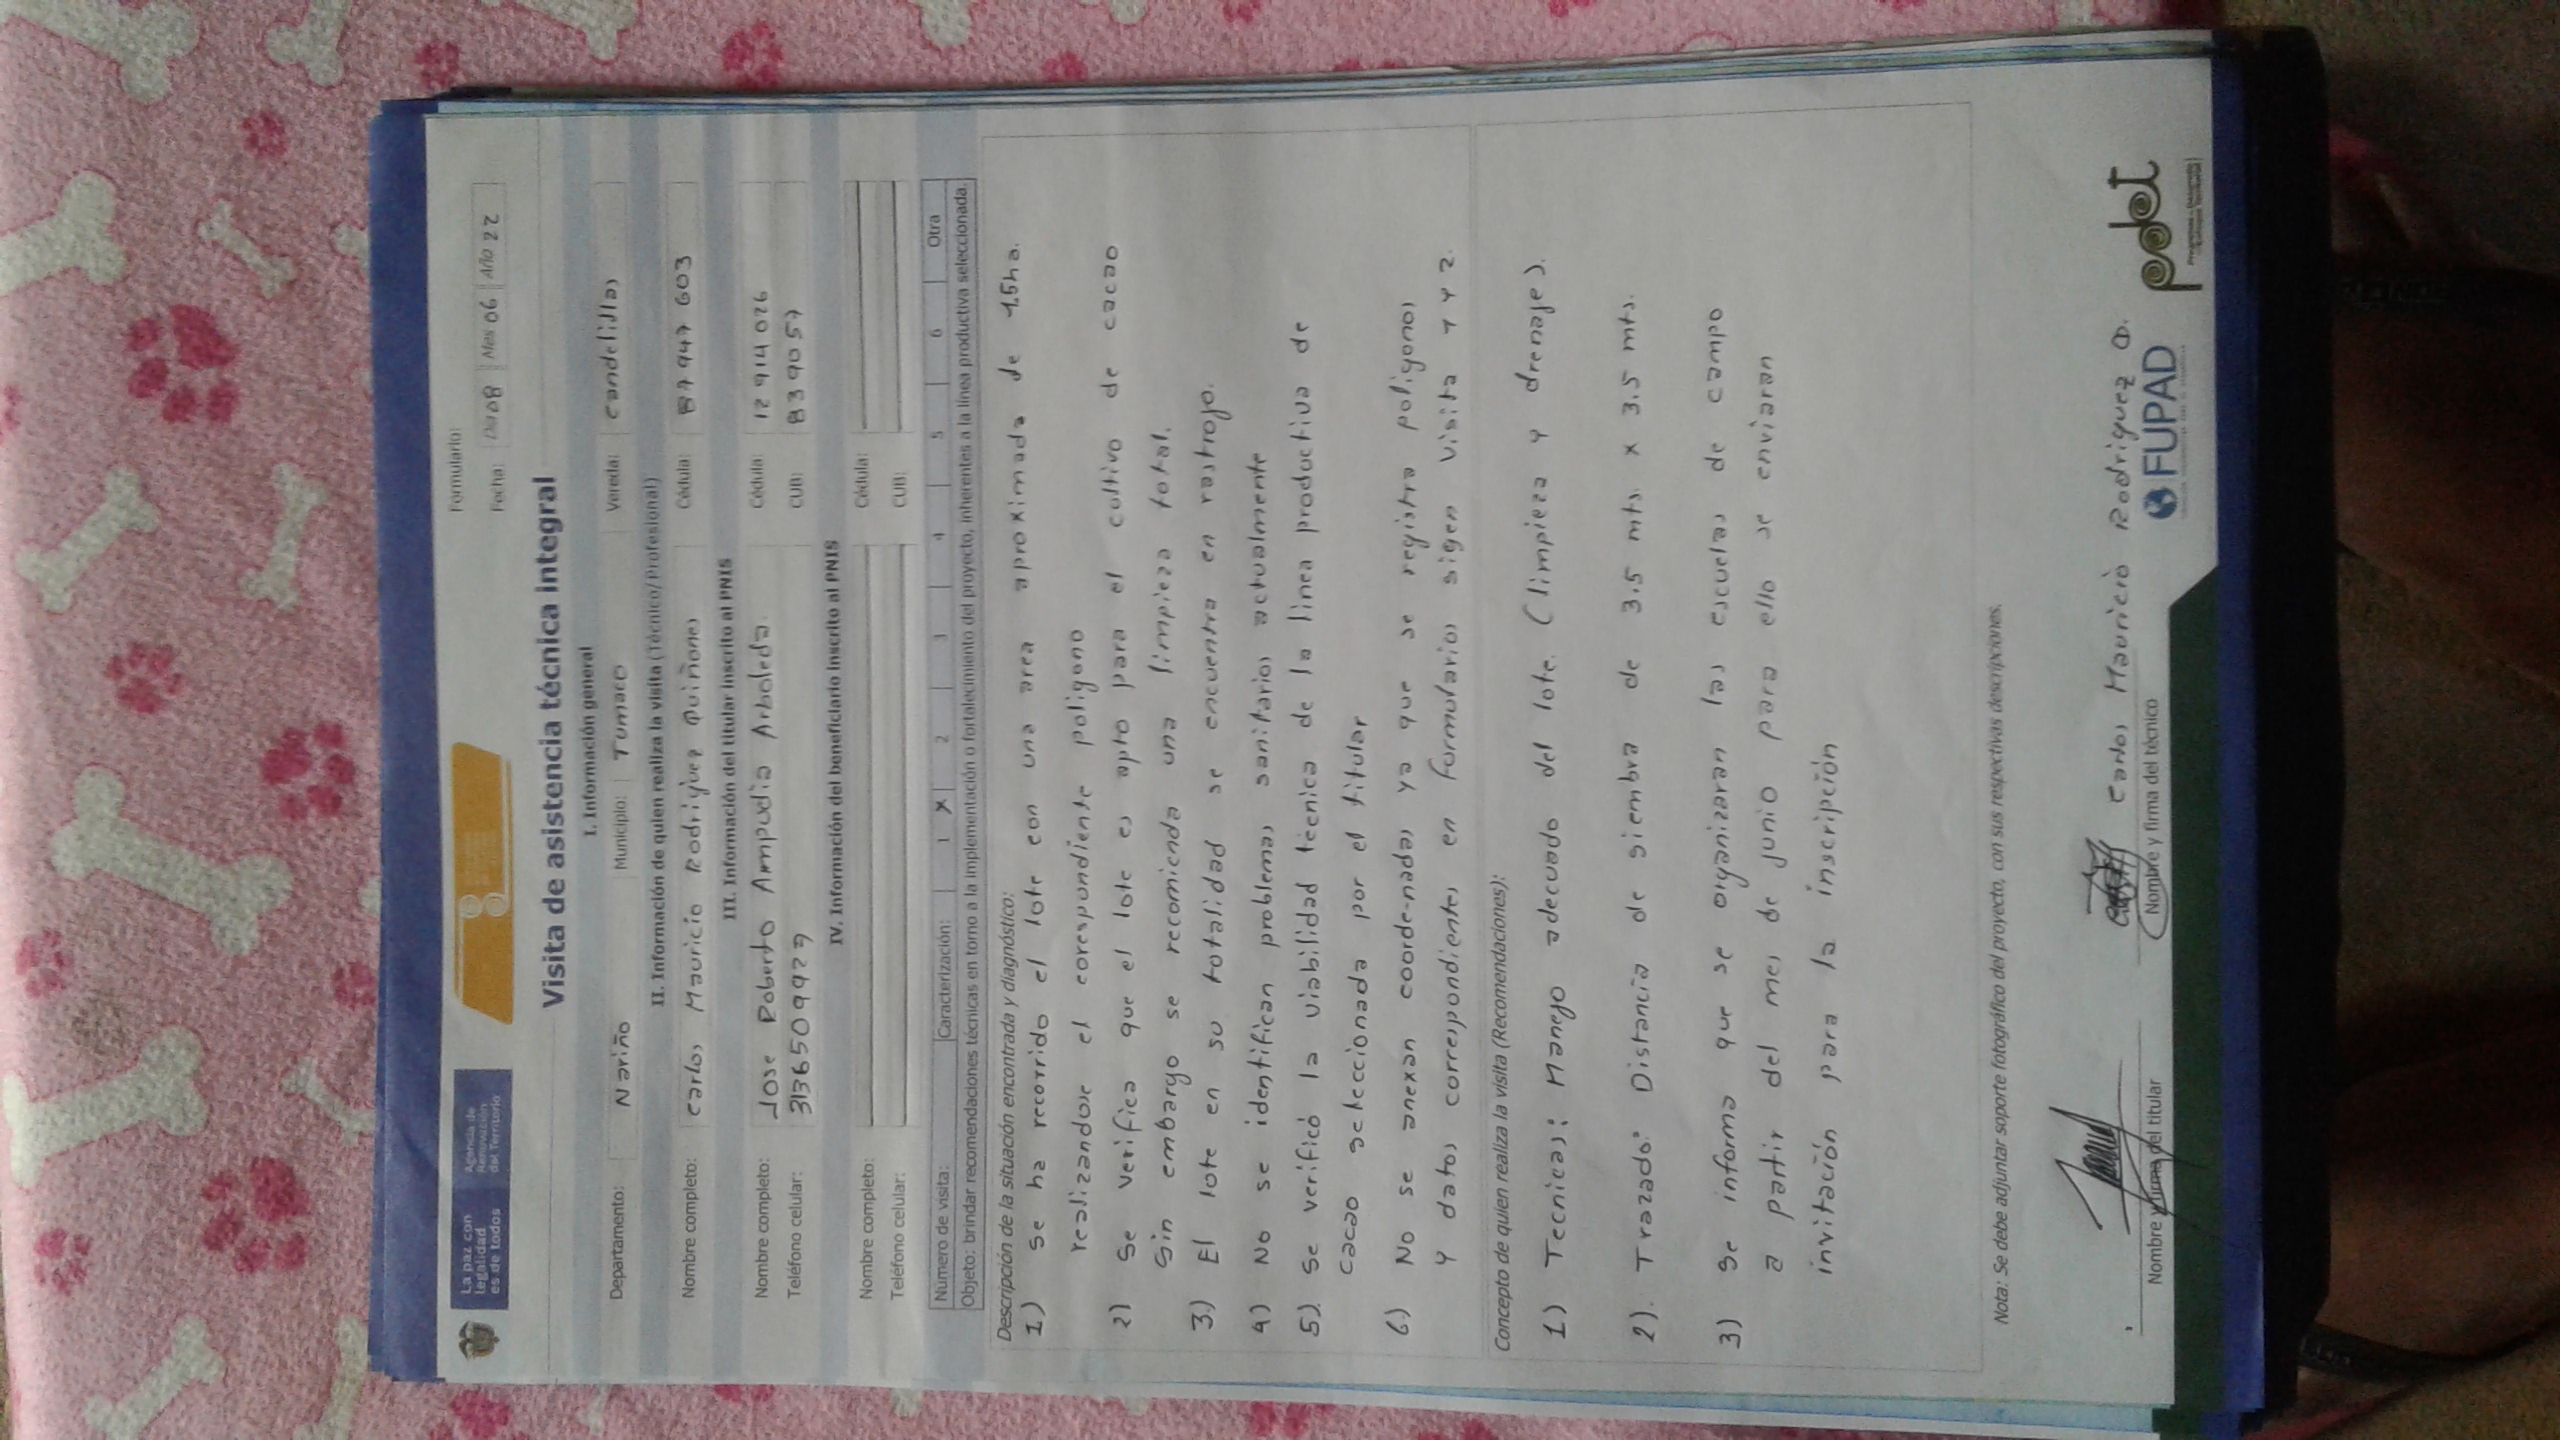 La paz con
legalidad
es de todos
Agencia de
Renovación
del Territorio
Formulario:
Fecha: Día 08 Mes 06 Año 22
Visita de asistencia técnica integral
I. Información general
Departamento: Nariño Municipio: Tumaco Vereda: candelillas
II. Información de quien realiza la visita (Técnico/Profesional)
Nombre completo: carlos Mauricio Rodriguez Quiñones Cédula: 87947603
III. Información del titular inscrito al PNIS
Nombre completo: Jose Roberto Ampudia Arboleda. Cédula: 12914026
Teléfono celular: 3136509929 CUB: 839057
IV. Información del beneficiario inscrito al PNIS
Nombre completo: Cédula:
Teléfono celular: CUB:
Número de visita: Caracterización: 1 X 2 3 4 5 6 Otra
Objeto: brindar recomendaciones técnicas en torno a la implementación o fortalecimiento del proyecto, inherentes a la línea productiva seleccionada.
Descripción de la situación encontrada y diagnóstico:
1) se ha recorrido el lote con una area aproximada de 1.5ha.
realizandose el correspondiente poligono
2) se verifica que el lote es apto para el cultivo de cacao
sin embargo se recomienda una limpieza total.
3) El lote en su totalidad se encuentra en rastrojo.
4) No se identifican problemas sanitarios actualmente
5). se verificó la viabilidad técnica de la linea productiva de
cacao seleccionada por el titular
6.) No se anexan coorde-nadas ya que se registra poligonos
y datos correspondientes en formularios sigen visita 1 y 2.
Concepto de quien realiza la visita (Recomendaciones):
1) Tecnicas: Manejo adecuado del lote. (limpieza y drenaje).
2). Trazado: Distancia de siembra de 3.5 mts. x 3.5 mts.
3) se informa que se organizaran las escuelas de campo
a partir del mes de junio para ello se enviaran
invitación para la inscripción
Nota: Se debe adjuntar soporte fotográfico del proyecto, con sus respectivas descripciones.
carlos Mauricio Rodriguez Q.
Nombre y firma del titular Nombre y firma del técnico
FUPAD
pdet